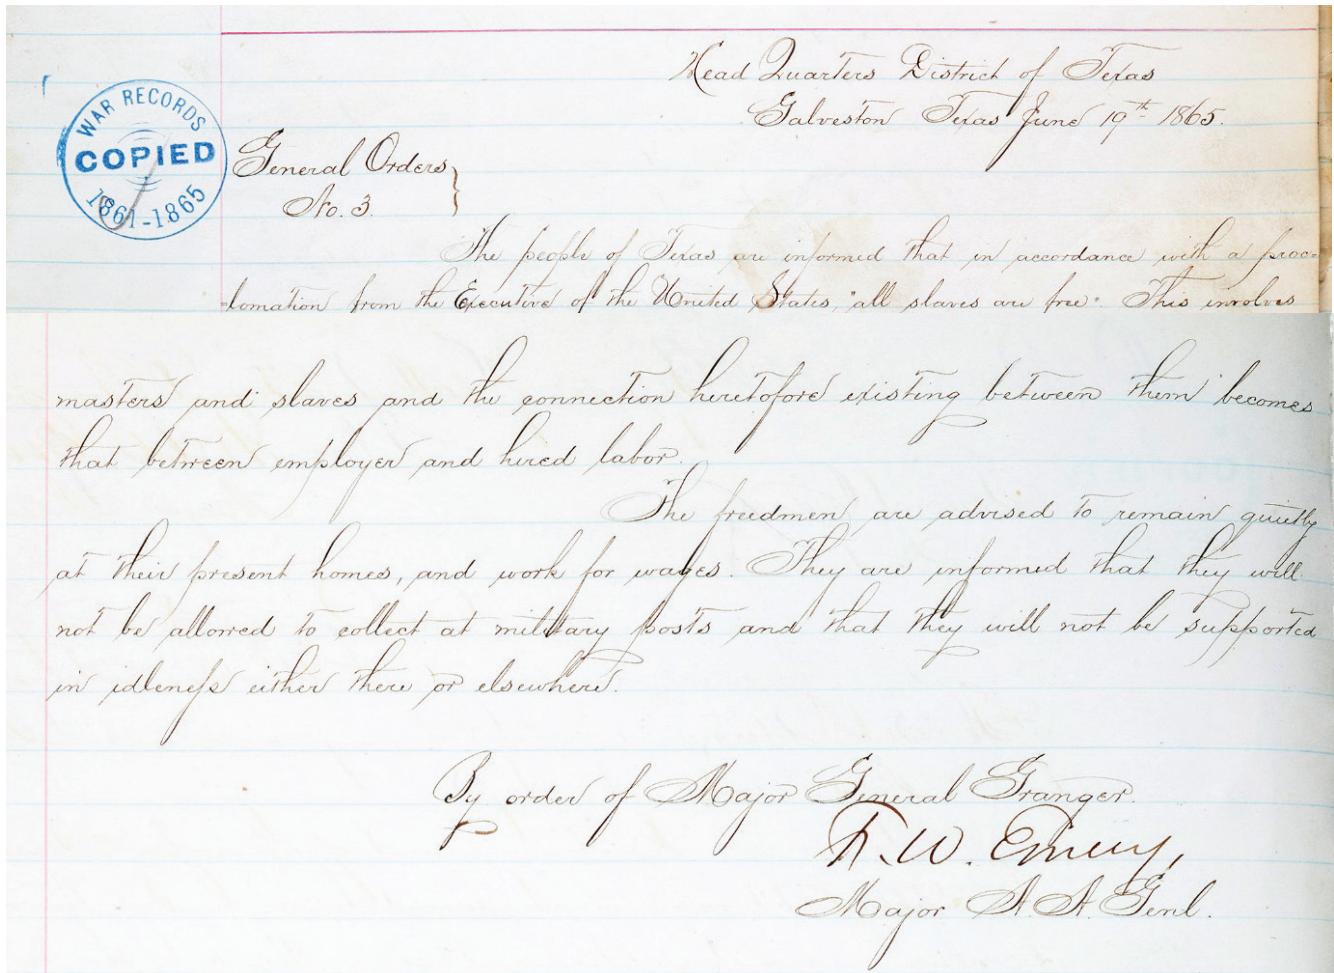 Head Quarters District of Texas
Galveston Texas June 19th 1865.
WAR RECORDS
COPIED
1861-1865
General Orders
No. 3.
The people of Texas are informed that in accordance with a proc=
=lamation from the Executive of the United States, "all slaves are free". This involves
masters and slaves and the connection heretofore existing between them becomes
that between employer and hired labor.
The freedmen are advised to remain quietly
at their present homes, and work for wages. They are informed that they will
not be allowed to collect at military posts and that they will not be supported
in idleness either there or elsewhere.
By order of Major General Granger.
F. W. Emery,
Major A. A. Genl.